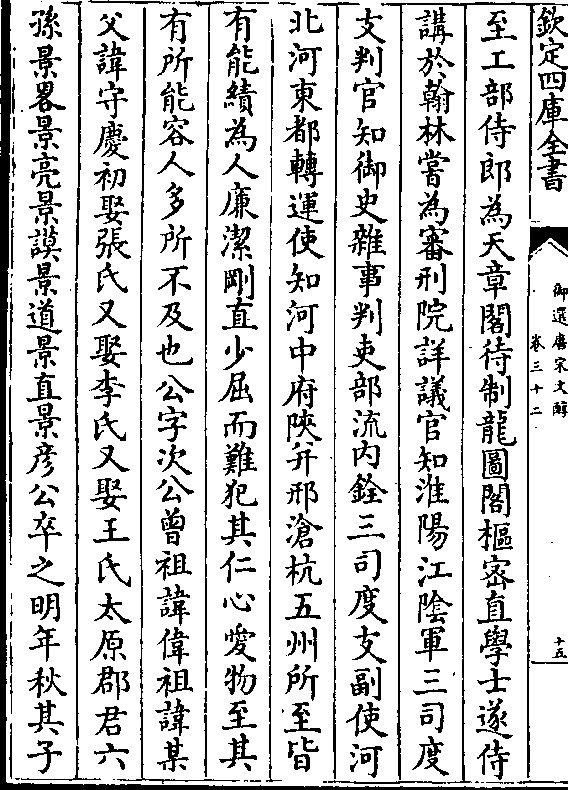 欽定四庫全書
御選唐宋文醇
卷三十二
十五
至工部侍郎為天章閣待制龍圖閣樞密直學士遂侍
講於翰林嘗為審刑院詳議官知淮陽江陰軍三司度
支判官知御史雜事判吏部流內銓三司度支副使河
北河東都轉運使知河中府陝幷邢滄杭五州所至皆
有能績為人廉潔剛直少屈而難犯其仁心愛物至其
有所能容人多所不及也公字次公曾祖諱偉祖諱某
父諱守慶初娶張氏又娶李氏又娶王氏太原郡君六
孫景畧景亮景謨景道景直景彥公卒之明年秋其子